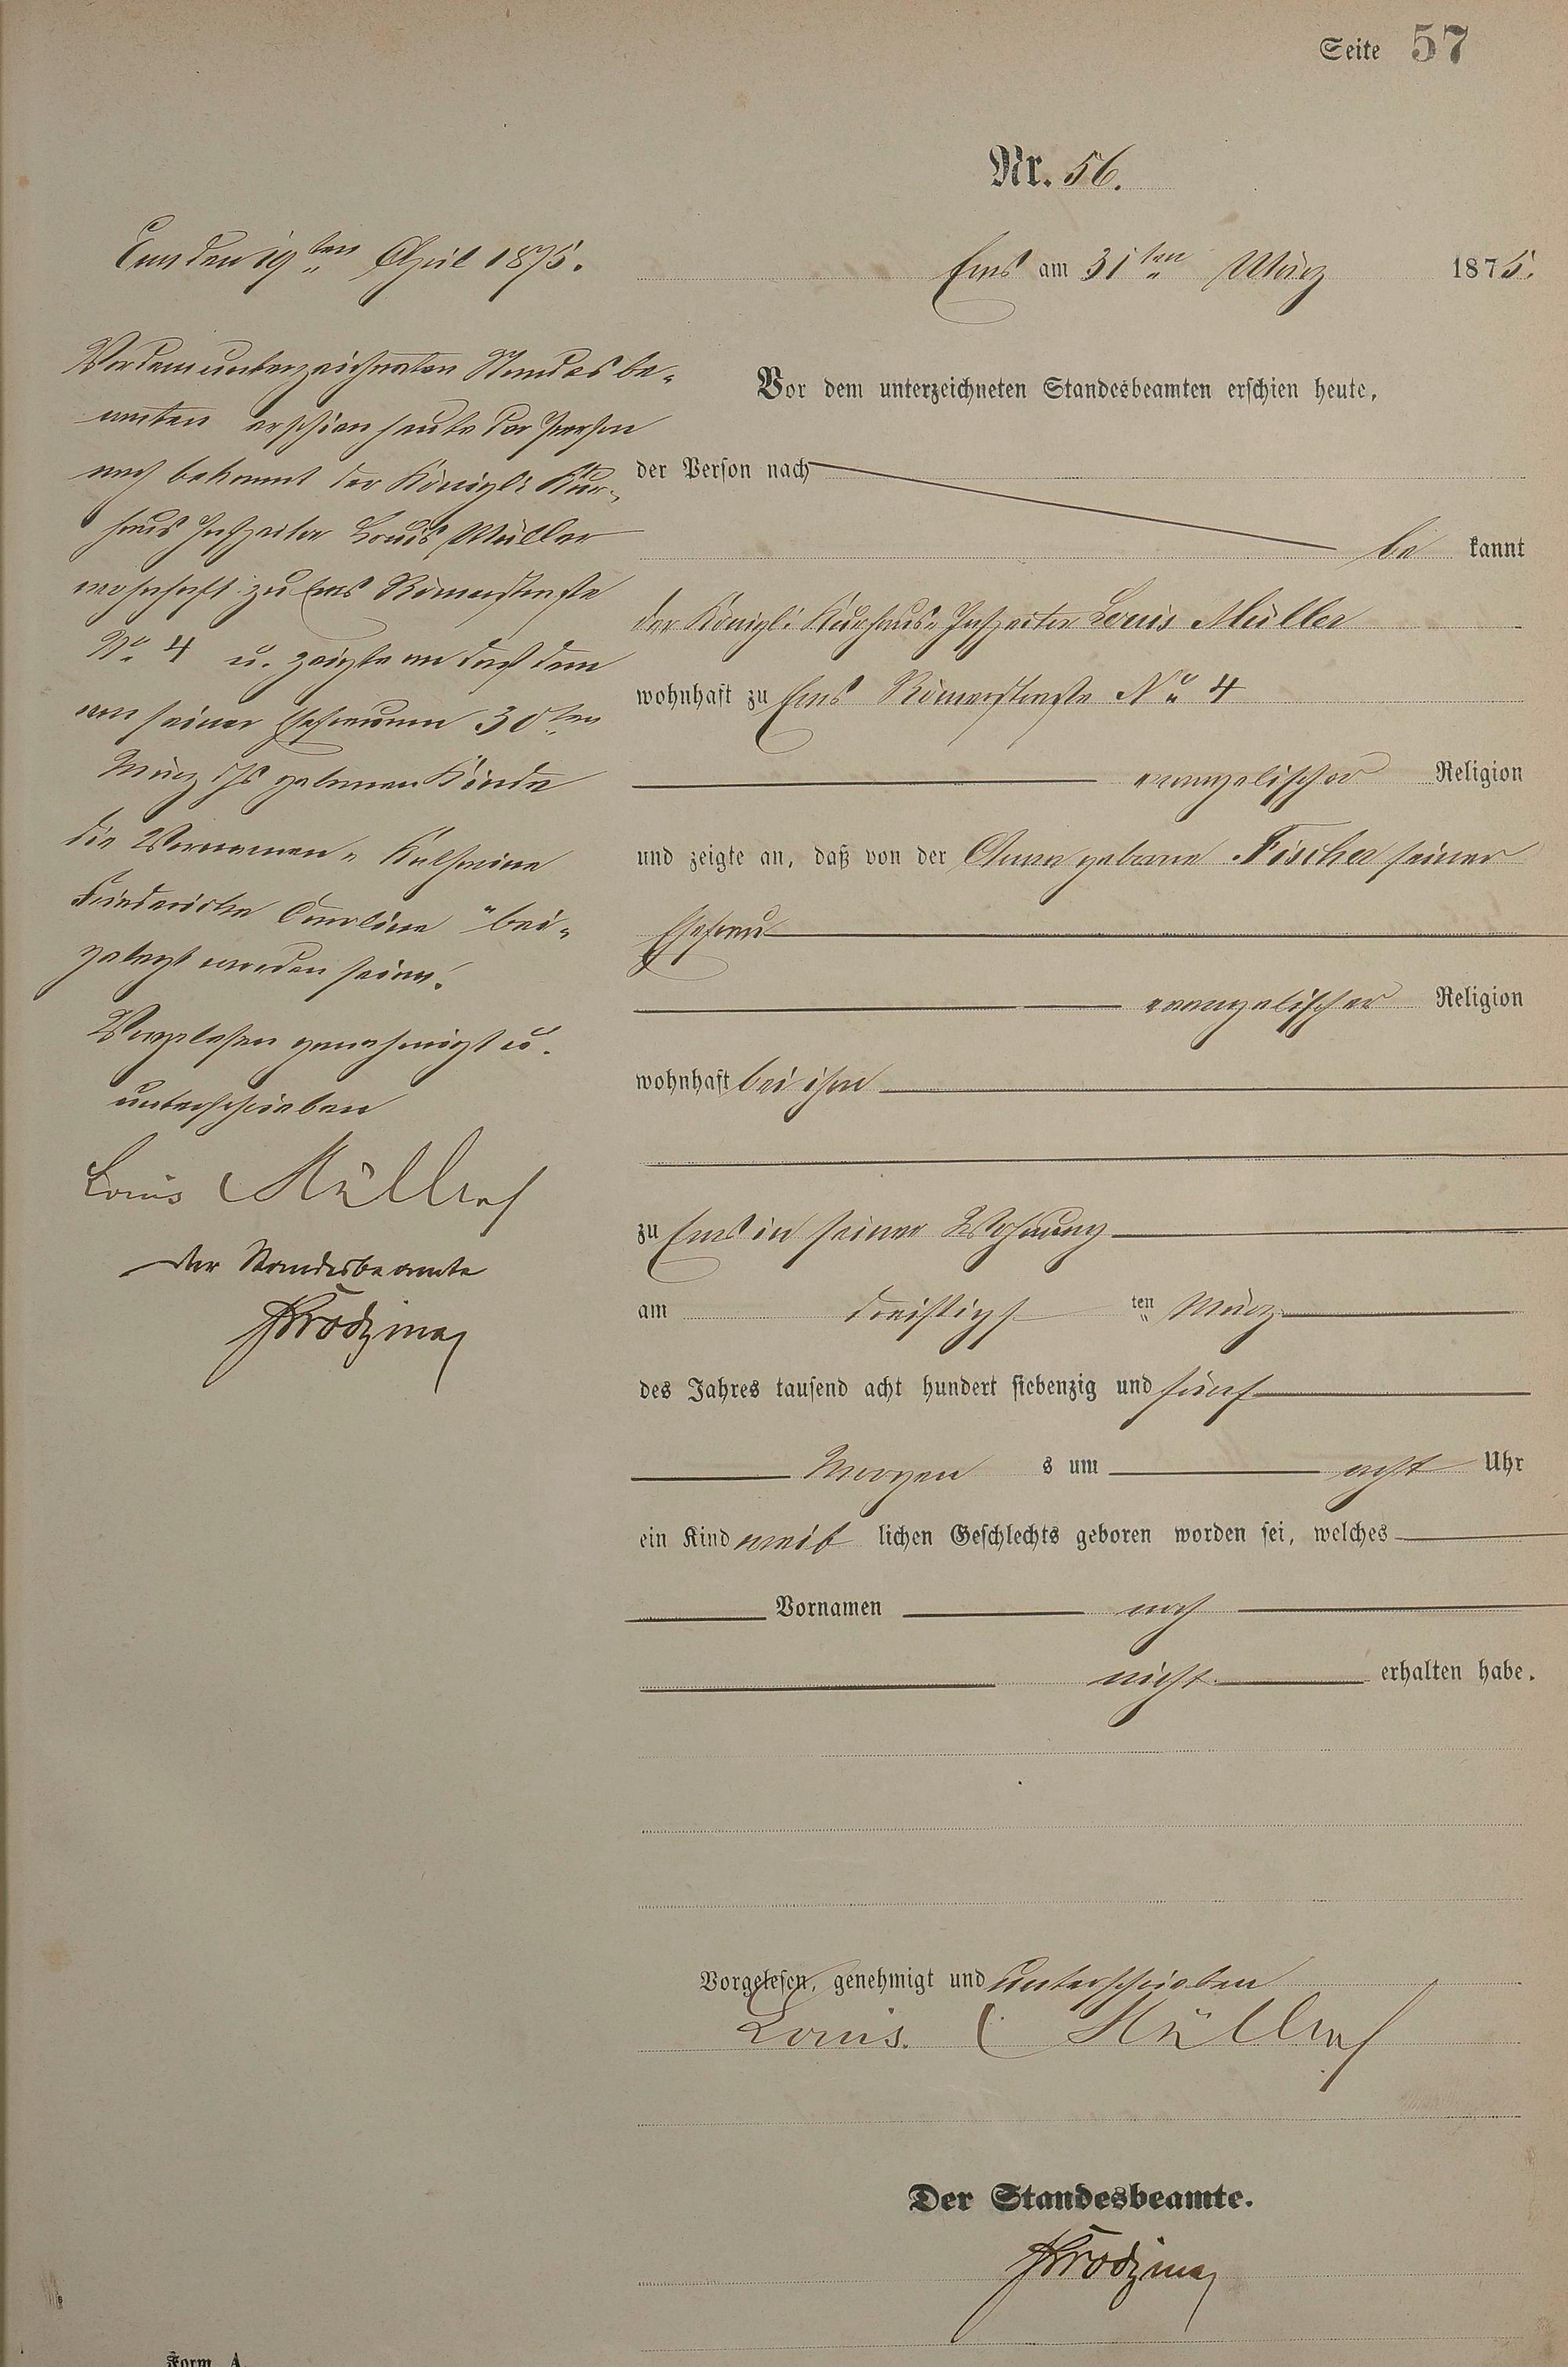 Seite 57
Nr. 56.
Ems am 31ten März 1875.
Vor dem unterzeichneten Standesbeamten erschien heute,
der Person nach
be kannt
der Königl: Kurhaus-Inspector Louis Müller
wohnhaft zu Ems Römerstraße No 4
evangelischer Religion
und zeigte an, daß von der Anna geborne Fischer seiner
Ehefrau
evangelischer Religion
wohnhaft bei ihm
zu Ems in seiner Wohnung
am dreißigs ten März
des Jahres tausend acht hundert siebenzig und fünf
Morgen s um acht Uhr
ein Kind weib lichen Geschlechts geboren worden sei, welches
Vornamen noch
nicht erhalten habe.
Vorgelesen, genehmigt und unterschrieben
Louis Müller
Der Standesbeamte.
Ems den 19ten April 1875.
Vor dem unterzeichneten Standesbe-
amten erschien heute der Person
nach bekannt der Königl: Kur-
haus Inspector Louis Müller
wohnhaft zu Ems Römerstraße
No 4 u. zeigte an daß dem
von seiner Ehefrau am 30ten
März gebornen Kinde
die Vornamen "
Friedericke Caroline" bei-
gelegt worden seien.
Vorgelesen genehmigt u.
unterschrieben
Louis Müller
Der Standesbeamte
Form A.